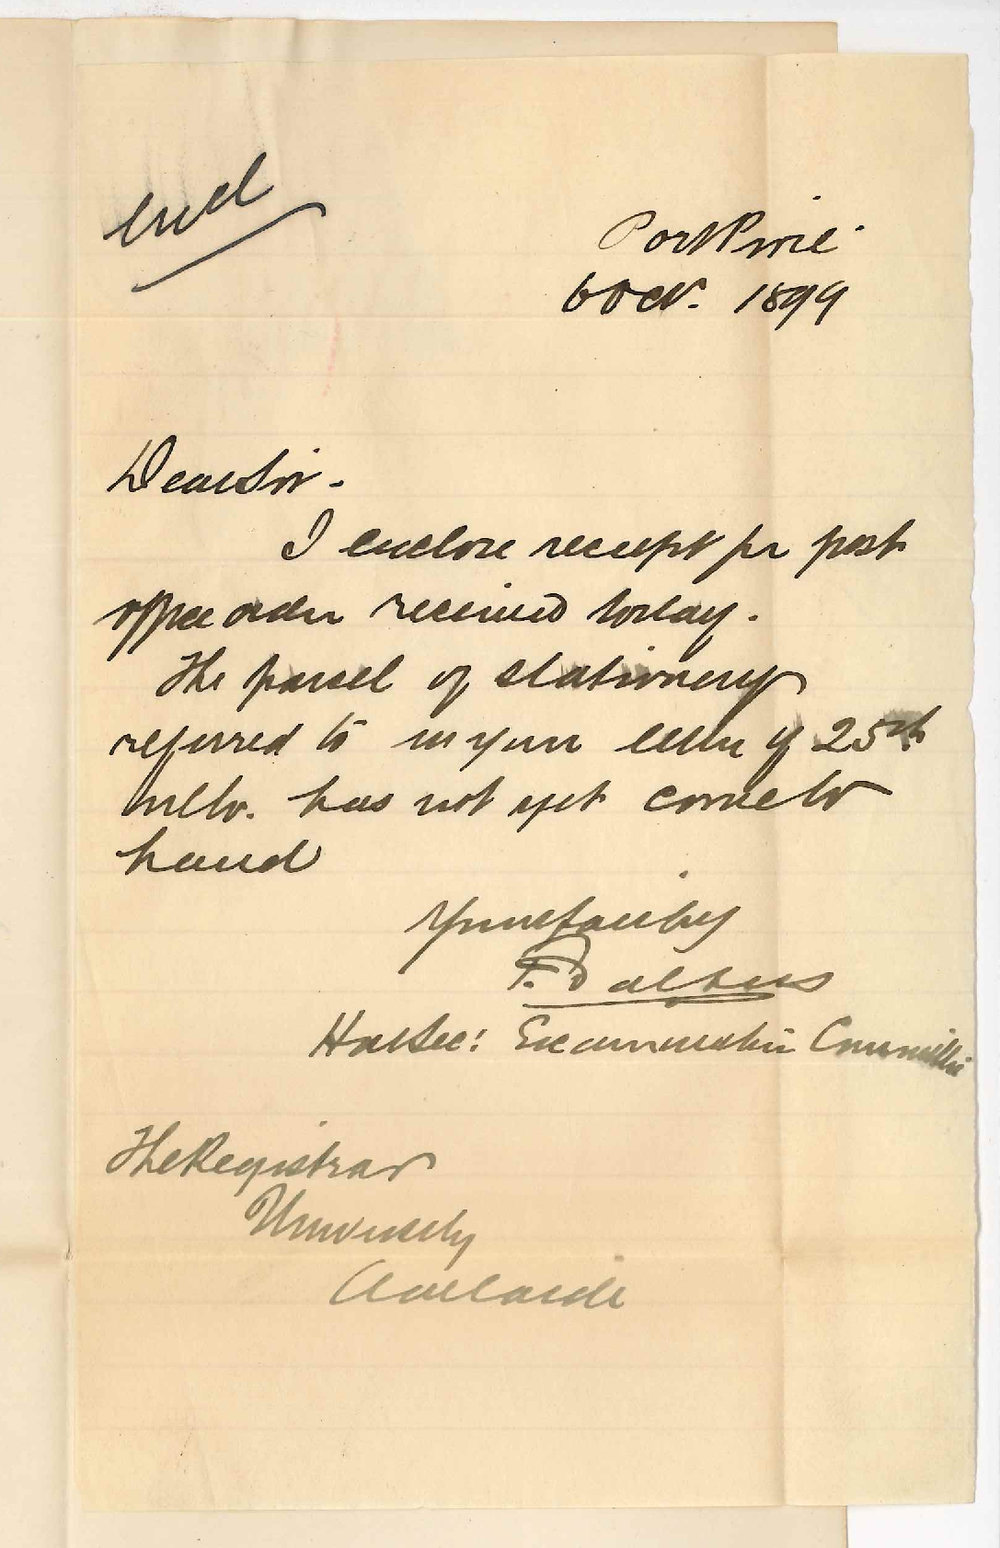 encl
Port Pirie
6 Oct. 1899
Dear Sir.
I enclose receipt for post
office order received today.
The parcel of stationery
referred to in your letter of 25th
ulto. has not yet come to
hand
Yours faithly
Hon Sec: Examination Committee
The Registrar
University
Adelaide